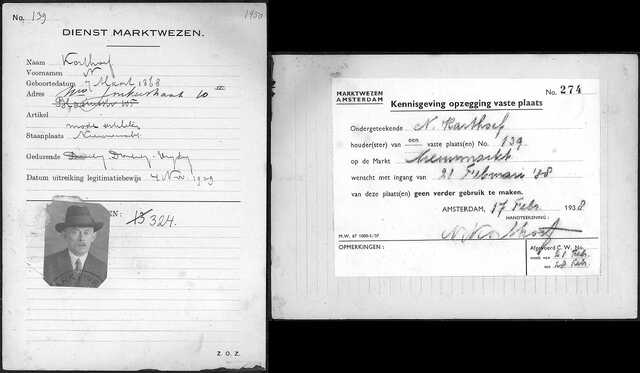 No. 139
1930
DIENST MARKTWEZEN.
Naam Korthoef
Voornamen N
Geboortedatum 7 Maart 1868
Adres 10 III
Artikel mode artikelen
Staanplaats Nieuwmarkt
Gedurende
Datum uitreiking legitimatiebewijs 4 Nov. 1929
EN: 13 324.
Z. O. Z.
MARKTWEZEN
AMSTERDAM
No. 274
Kennisgeving opzegging vaste plaats
Ondergeteekende N. Korthoef
houder(ster) van een vaste plaats(en) No. 139
op de Markt Nieuwmarkt
wenscht met ingang van 21 Februari '38
van deze plaats(en) geen verder gebruik te maken.
AMSTERDAM, 17 Febr. 1938
HANDTEEKENING:
N. Korthoef
M.W. 67 1000-5/37
OPMERKINGEN:
Afgevoerd C. W. No.
Febr.
Febr.